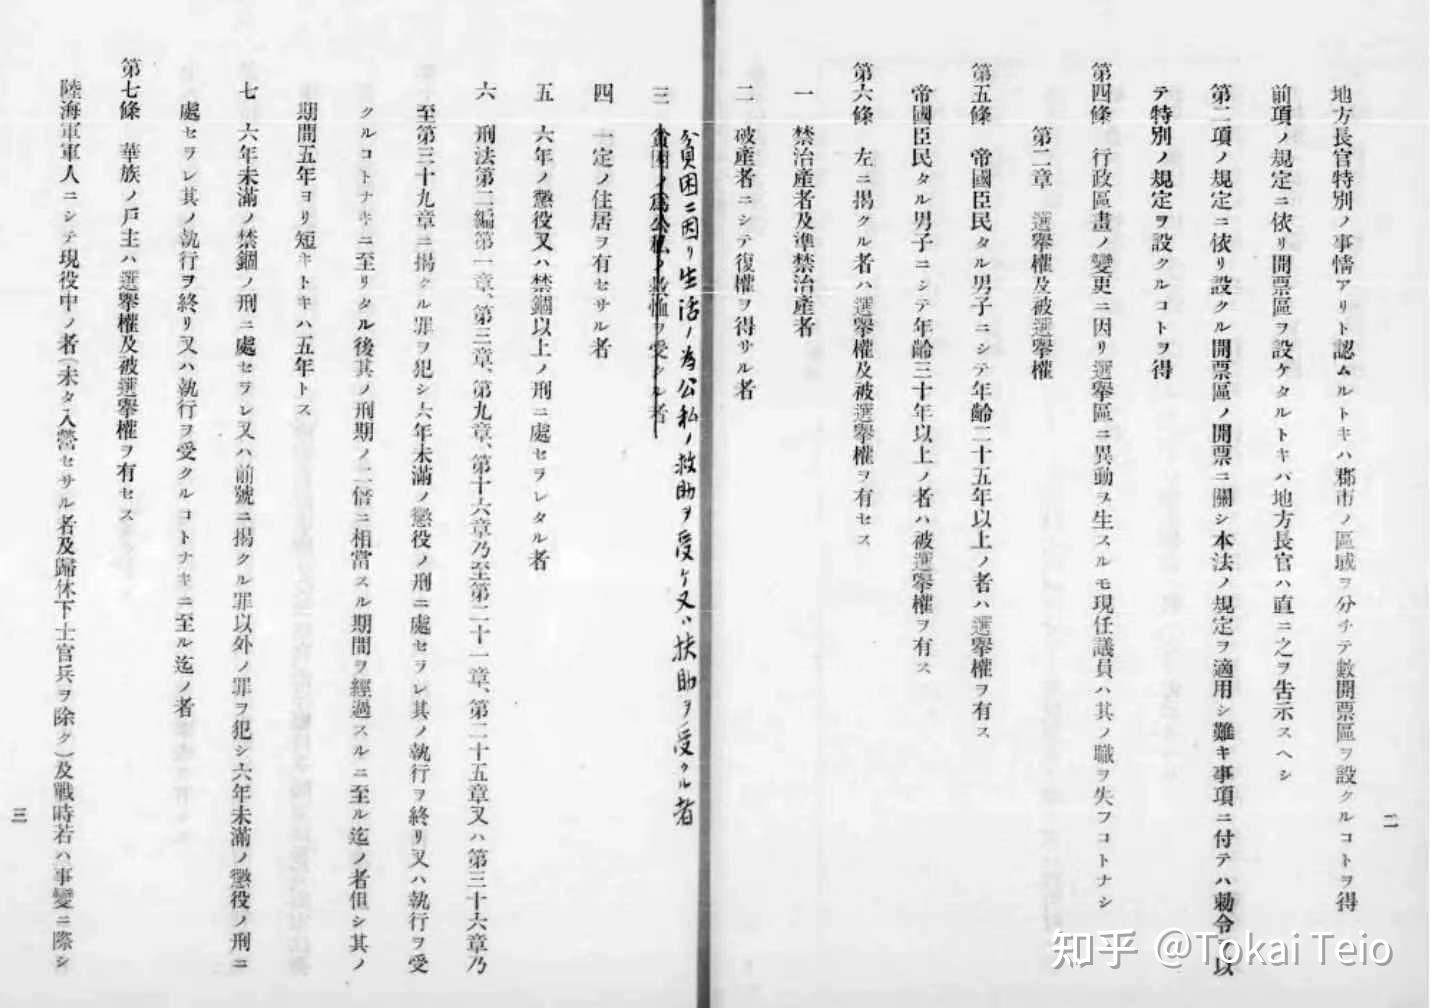 地方長官特別ノ事情アリト認ムルトキハ郡市ノ區域ヲ分チテ數開票區ヲ設クルコトヲ得
前項ノ規定ニ依リ開票區ヲ設ケタルトキハ地方長官ハ直ニ之ヲ告示スヘシ
第二項ノ規定ニ依リ設クル開票區ノ開票ニ關シ本法ノ規定ヲ適用シ難キ事項ニ付テハ勅令ヲ以
テ特別ノ規定ヲ設クルコトヲ得
第四條 行政區畫ノ變更ニ因リ選擧區ニ異動ヲ生スルモ現任議員ハ其ノ職ヲ失フコトナシ
第二章 選擧權及被選擧權
第五條 帝國臣民タル男子ニシテ年齡二十五年以上ノ者ハ選擧權ヲ有ス
帝國臣民タル男子ニシテ年齡三十年以上ノ者ハ被選擧權ヲ有ス
第六條 左ニ揭クル者ハ選擧權及被選擧權ヲ有セス
一 禁治產者及準禁治產者
二 破產者ニシテ復權ヲ得サル者
貧困ニ因リ生活ノ為公私ノ救助ヲ受ケ又ハ扶助ヲ受クル者
三 貧困ノ爲公私ノ救恤ヲ受クル者
四 一定ノ住居ヲ有セサル者
五 六年ノ懲役又ハ禁錮以上ノ刑ニ處セラレタル者
六 刑法第二編第一章、第三章、第九章、第十六章乃至第二十一章、第二十五章又ハ第三十六章乃
至第三十九章ニ揭クル罪ヲ犯シ六年未滿ノ懲役ノ刑ニ處セラレ其ノ執行ヲ終リ又ハ執行ヲ受
クルコトナキニ至リタル後其ノ刑期ノ二倍ニ相當スル期間ヲ經過スルニ至ル迄ノ者但シ其ノ
期間五年ヨリ短キトキハ五年トス
七 六年未滿ノ禁錮ノ刑ニ處セラレ又ハ前號ニ揭クル罪以外ノ罪ヲ犯シ六年未滿ノ懲役ノ刑ニ
處セラレ其ノ執行ヲ終リ又ハ執行ヲ受クルコトナキニ至ル迄ノ者
第七條 華族ノ戶主ハ選擧權及被選擧權ヲ有セス
陸海軍軍人ニシテ現役中ノ者(未タ入營セサル者及歸休下士官兵ヲ除ク)及戰時若ハ事變ニ際シ
二
三
知乎 @Tokai Teio